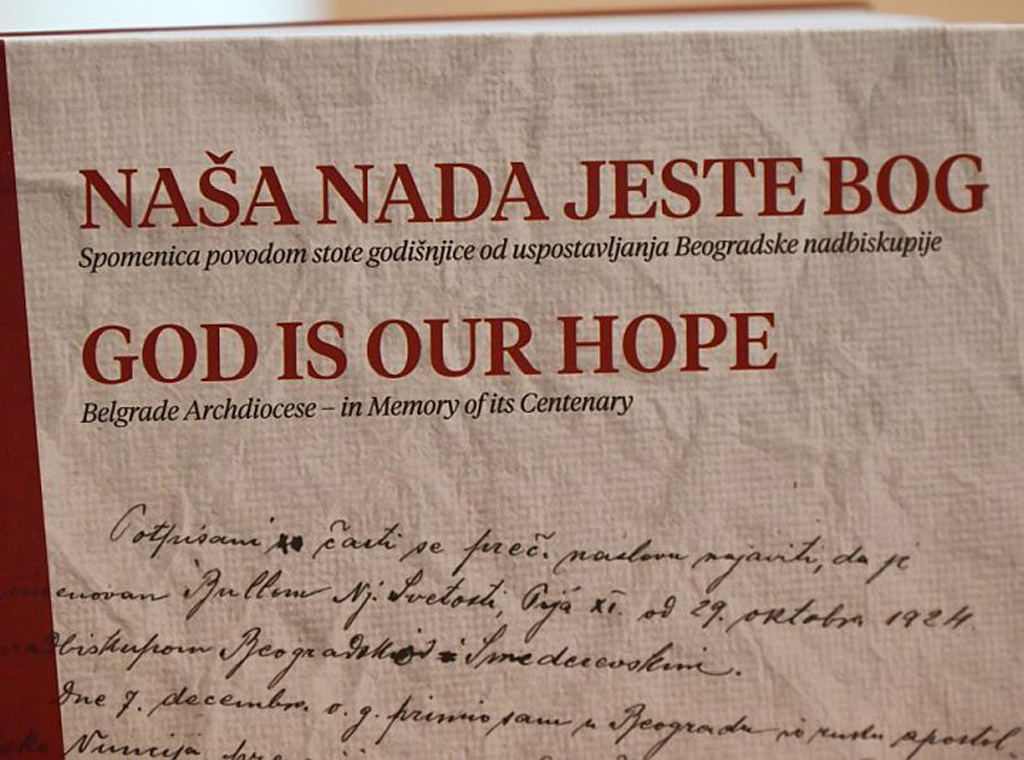 NAŠA NADA JESTE BOG
Spomenica povodom stote godišnjice od uspostavljanja Beogradske nadbiskupije
GOD IS OUR HOPE
Belgrade Archdiocese – in Memory of its Centenary
Potpisani časti se preč. naslovu najaviti, da je
imenovan Bullom Nj. Svetosti, Pija XI. od 29. oktobra 1924
nadbiskupom Beogradskim i Smederevskim.
Dne 7. decembra o. g. primio sam u Beogradu iz ruku apostol-
Nuncija